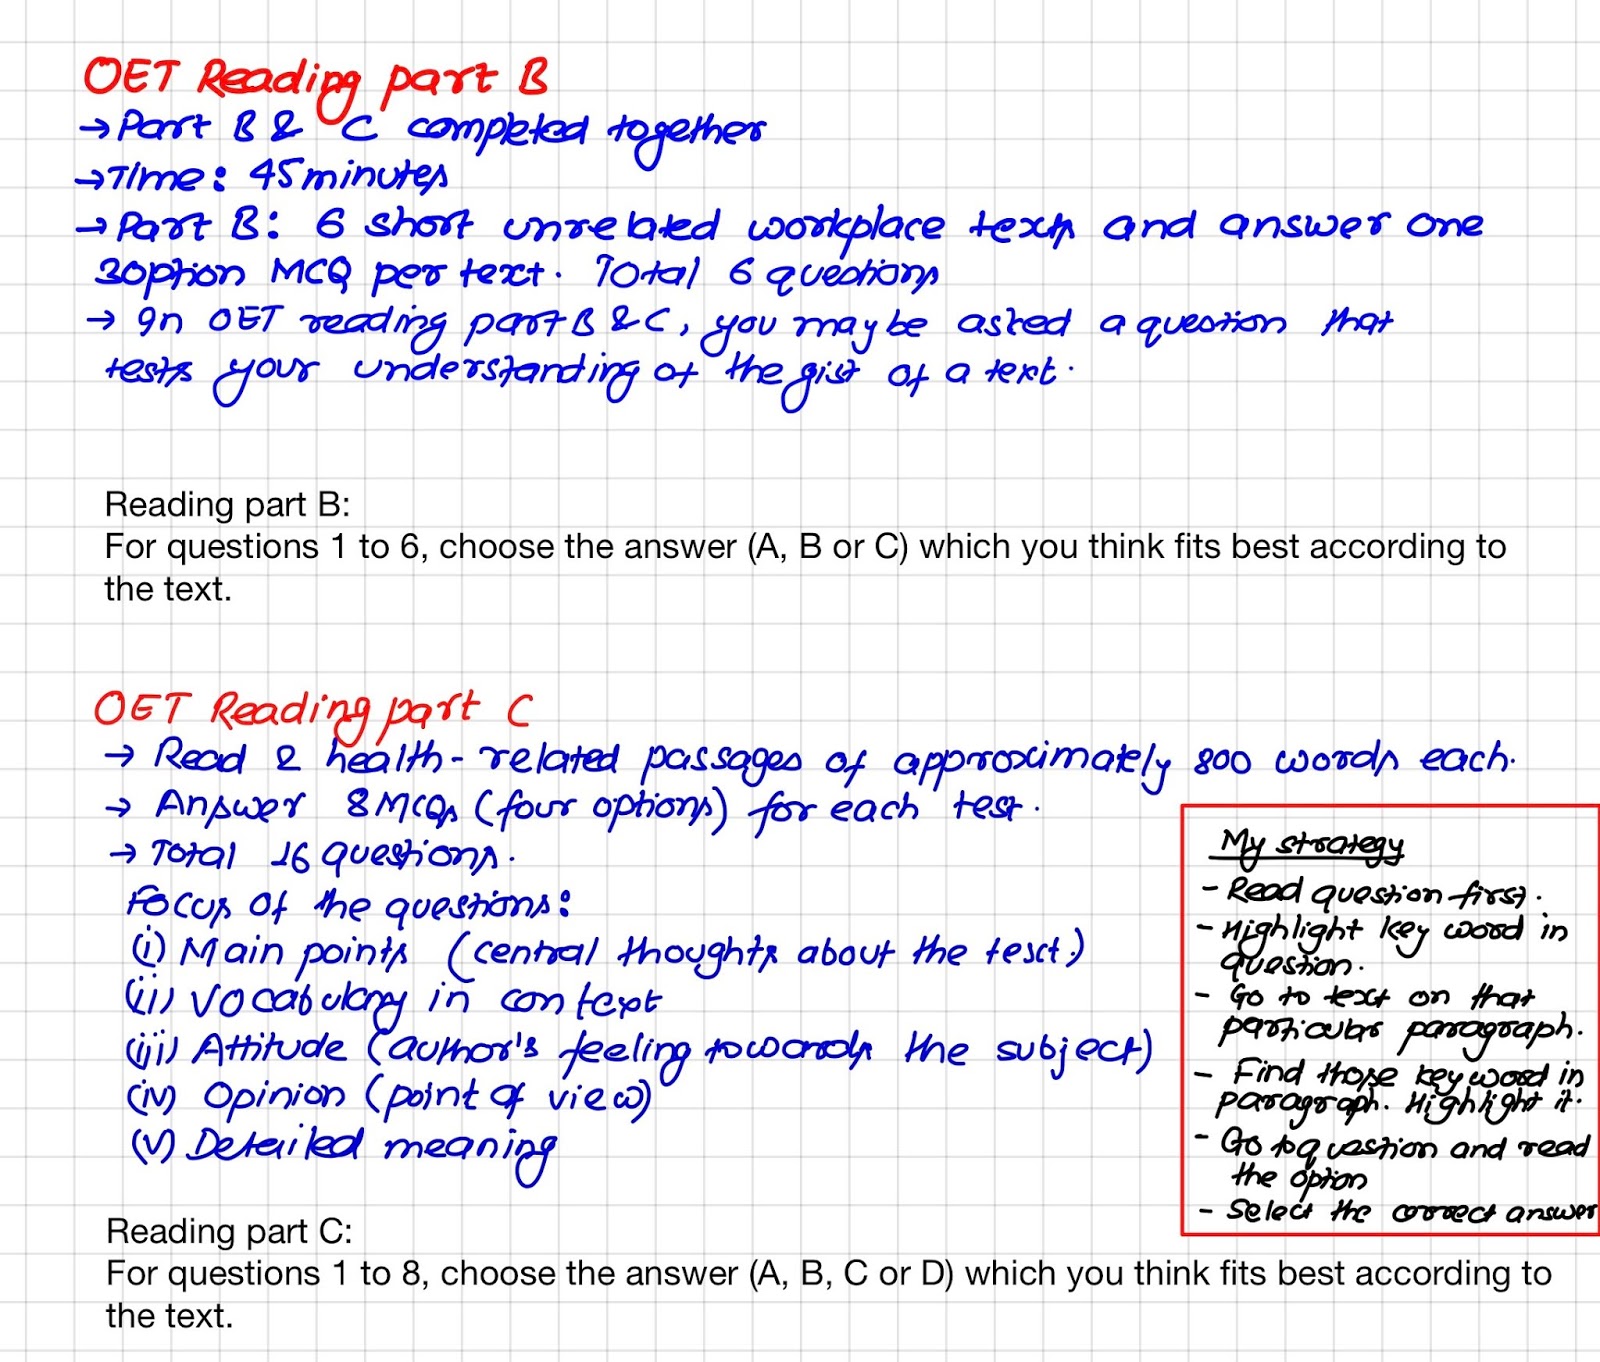 OET Reading part B
→ Part B & C completed together
→ Time: 45 minutes
→ Part B: 6 short unrelated workplace texts and answer one
3option MCQ per text. Total 6 questions
→ In OET reading part B & C, you may be asked a question that
tests your understanding of the gist of a text.
Reading part B:
For questions 1 to 6, choose the answer (A, B or C) which you think fits best according to
the text.
OET Reading part C
→ Read 2 health-related passages of approximately 800 words each.
→ Answer 8 MCQs (four options) for each test.
→ Total 16 questions.
Focus of the questions:
(i) Main points (central thoughts about the text.)
(ii) Vocabulary in context
(iii) Attitude (author's feeling towards the subject)
(iv) Opinion (point of view)
(v) Detailed meaning
My strategy
- Read question first.
- Highlight key word in
question.
- Go to text on that
particular paragraph.
- Find those key word in
paragraph. Highlight it.
- Go to question and read
the option
- Select the correct answer
Reading part C:
For questions 1 to 8, choose the answer (A, B, C or D) which you think fits best according to
the text.